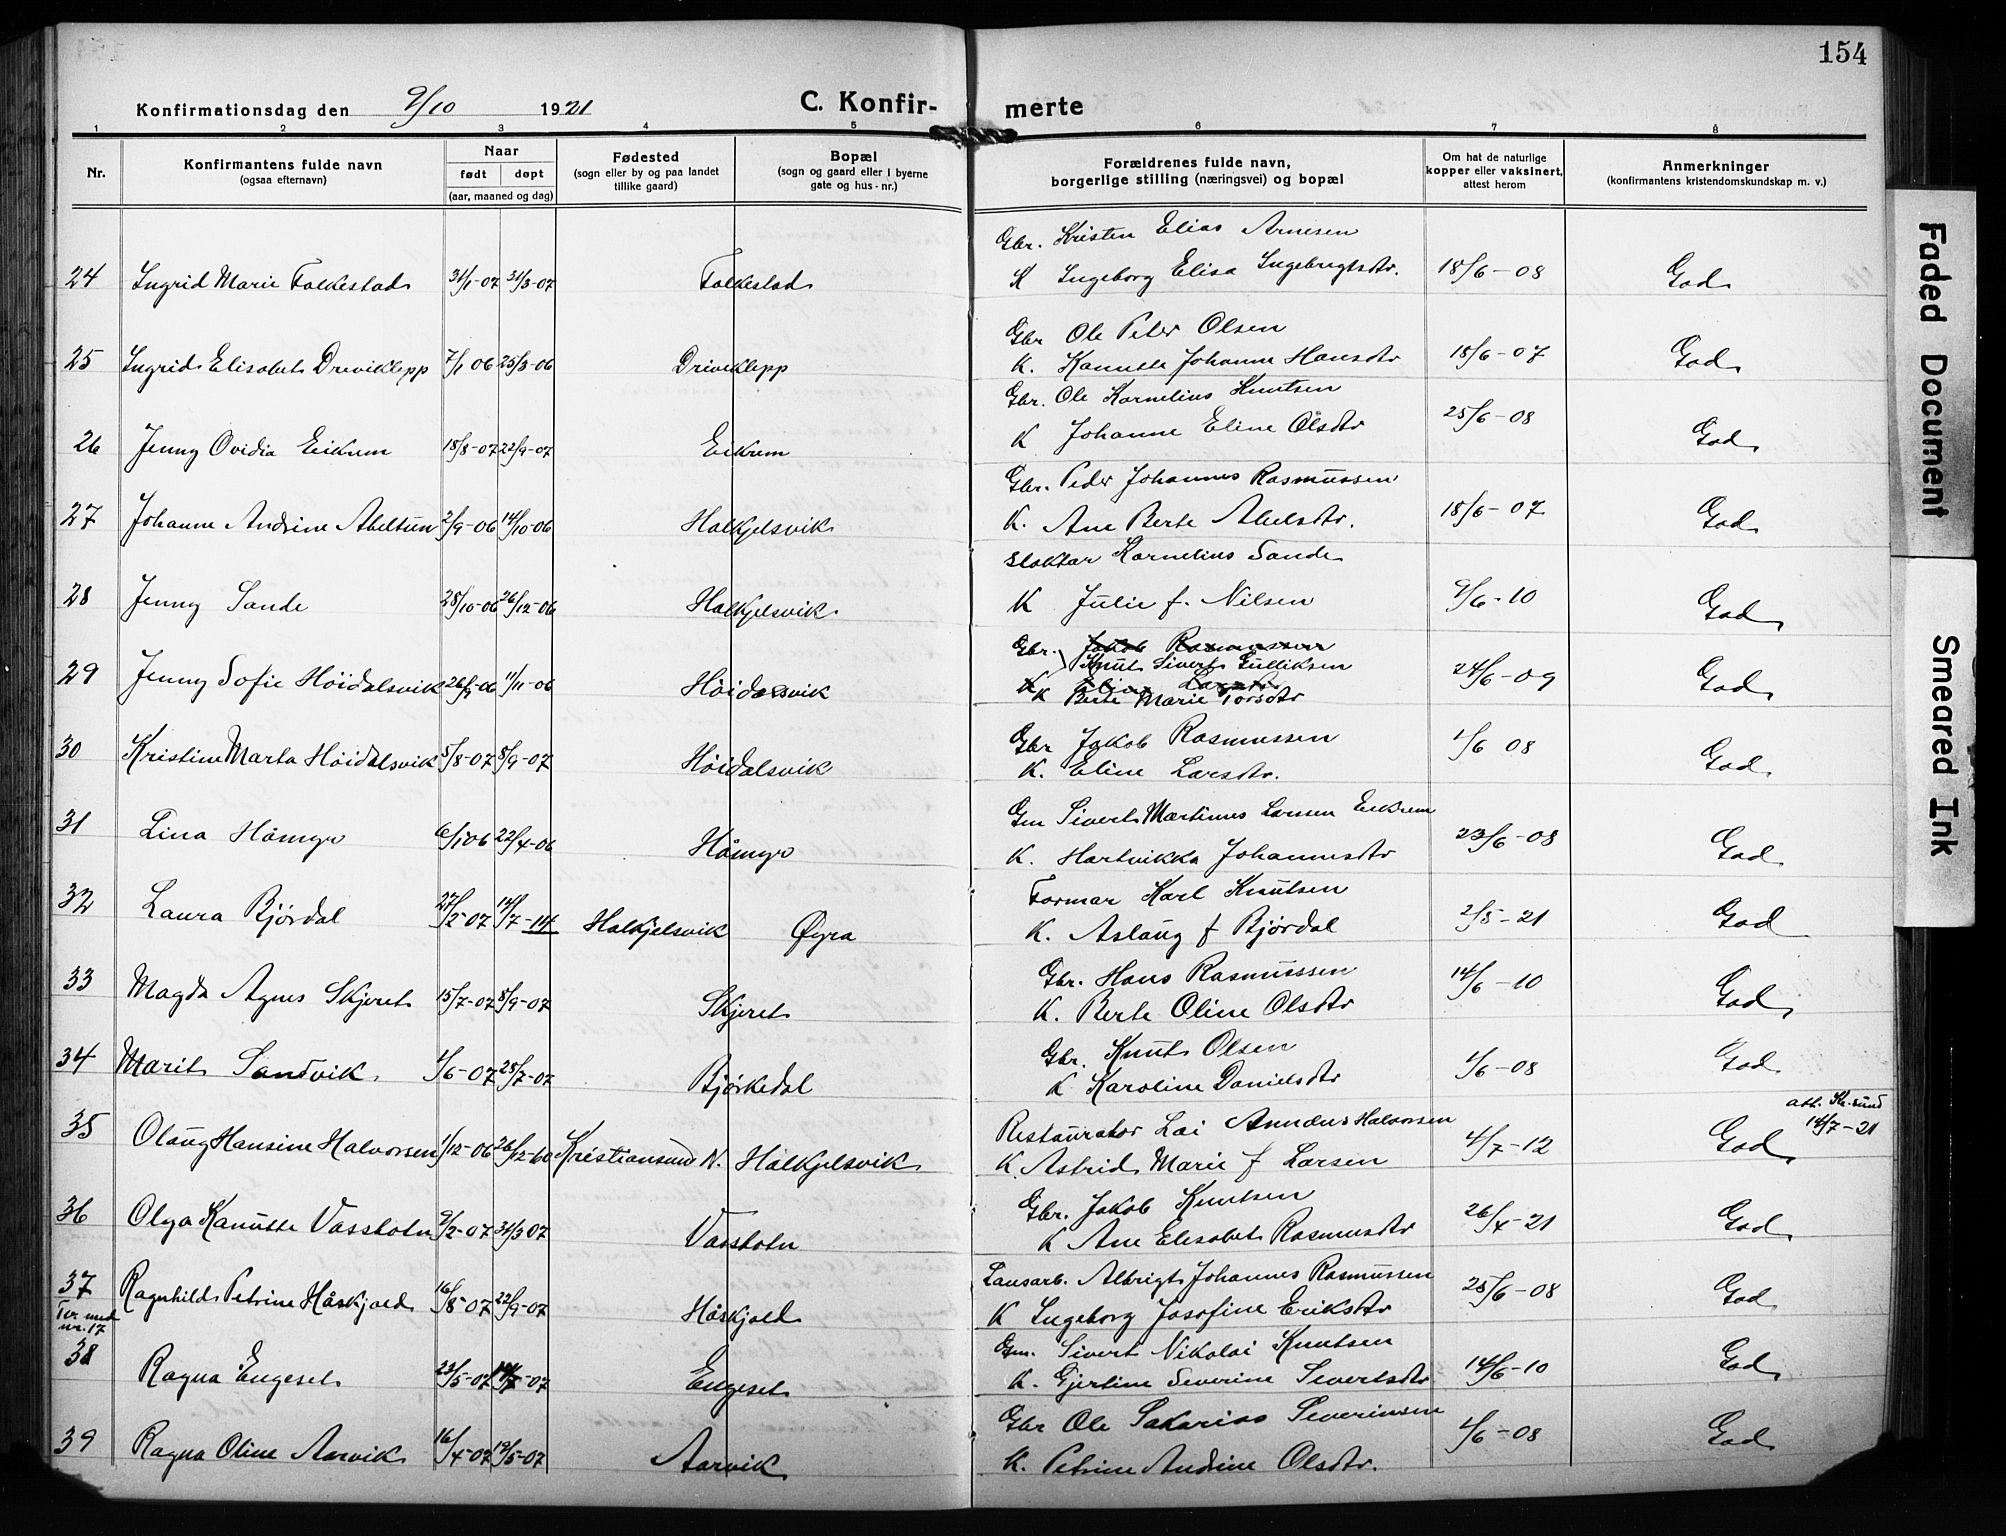 154
Konfirmationsdag den 9/10 1921 C. Konfir- merte
1 2 3 4 5 6 7 8
Nr.
Konfirmantens fulde navn
(ogsaa efternavn)
Naar
født døpt
(aar, maaned og dag)
Fødested
(sogn eller by og paa landet
tillike gaard)
Bopæl
(sogn og gaard eller i byerne
gate og hus-nr.)
Forældrenes fulde navn,
borgerlige stilling (næringsvei) og bopæl
Om hat de naturlige
kopper eller vaksinert,
attest herom
Anmerkninger
(konfirmantens kristendomskundskap m. v.)
Gbr. Kristen Elias Arnesen
24 Ingrid Marie Folkestad 31/1-07 31/3-07 Folkestad K Ingeborg Elisa Ingebrigtsdtr. 18/6-08 God
Gbr Ole Peter Olsen
25 Ingrid Elisabet Driveklepp 7/1 06 25/3-06 Driveklepp K. Kanutte Johanne Hansdtr 18/6-07 God
Gbr. Ole Kornelius Knutsen
26 Jenny Ovidia Eikrem 18/8-07 22/9-07 Eikrem K Johanne Eline Olsdtr 25/6-08 God
Gbr. Peder Johannes Rasmussen
27 Johanne Andrine Abeltun 2/9-06 14/10-06 Halkjelsvik K. Ane Berte Abelsdtr. 18/6-07 God
Slaktar Kornelius Sande
28 Jenny Sande 28/10-06 26/12-06 Halkjelsvik K Julie f. Nilsen 9/6-10 God
Gbr. Jakob Rasmussen
Knut Sivert Gulliksen
29 Jenny Sofie Höidalsvik 26/9-06 11/11-06 Höidalsvik K Eline Larsdtr 24/6-09 God
K Berte Marie Torsdtr
Gbr Jakob Rasmussen
30 Kristine Marta Höidalsvik 5/8-07 8/9-07 Höidalsvik K. Eline Larsdtr. 1/6 08 God
Gm Sivert Martinus Larsen Eikrem
31 Lina Håmyr 6/1 06 22/4-06 Håmyr K. Hartvikka Johannesdtr 23/6-08 God
Formar Karl Knutsen
32 Laura Bjørdal 27/2-07 14/7-14 Halkjelsvik Øyra K. Aslaug f Bjørdal 2/5-21 God
Gbr. Hans Rasmussen
33 Magda Agnes Skjeret 15/7-07 8/9-07 Skjeret K. Berte Oline Olsdtr 14/6-10 God
Gbr. Knut Olsen
34 Marit Sandvik 4/6-07 28/7-07 Bjørkedal K Karoline Danielsdtr 4/6-08 God
Restauratør Lai Annæus Halvorsen att. Kr.sund
14/7-21
35 Olaug Hansine Halvorsen 1/12-06 26/12-60 Kristiansund N. Halkjelsvik K Astrid Marie f Larsen 4/7-12 God
Gbr. Jakob Knutsen
36 Olga Kanutte Vassbotn 9/2-07 31/3 07 Vassbotn K Ane Elisabet Rasmusdtr 26/4-21 God
Lausarb. Albrigt Johannes Rasmussen
37 Ragnhild Petrine Håskjold 16/8-07 22/9-07 Håskjold K Ingeborg Josefine Eriksdtr 25/6-08 God
Ter. med
nr. 17
Gm. Sivert Nikolai Knutsen
38 Ragna Engeset 23/5-07 14/7-07 Engeset K. Gjertine Severine Sivertsdtr 14/6-10 God
Gbr Ole Sakarias Severinsen
39 Ragna Oline Aarvik 16/4-07 19/5-07 Aarvik K. Petrine Andrine Olsdtr. 4/6-08 God
Faded Document
Smeared Ink